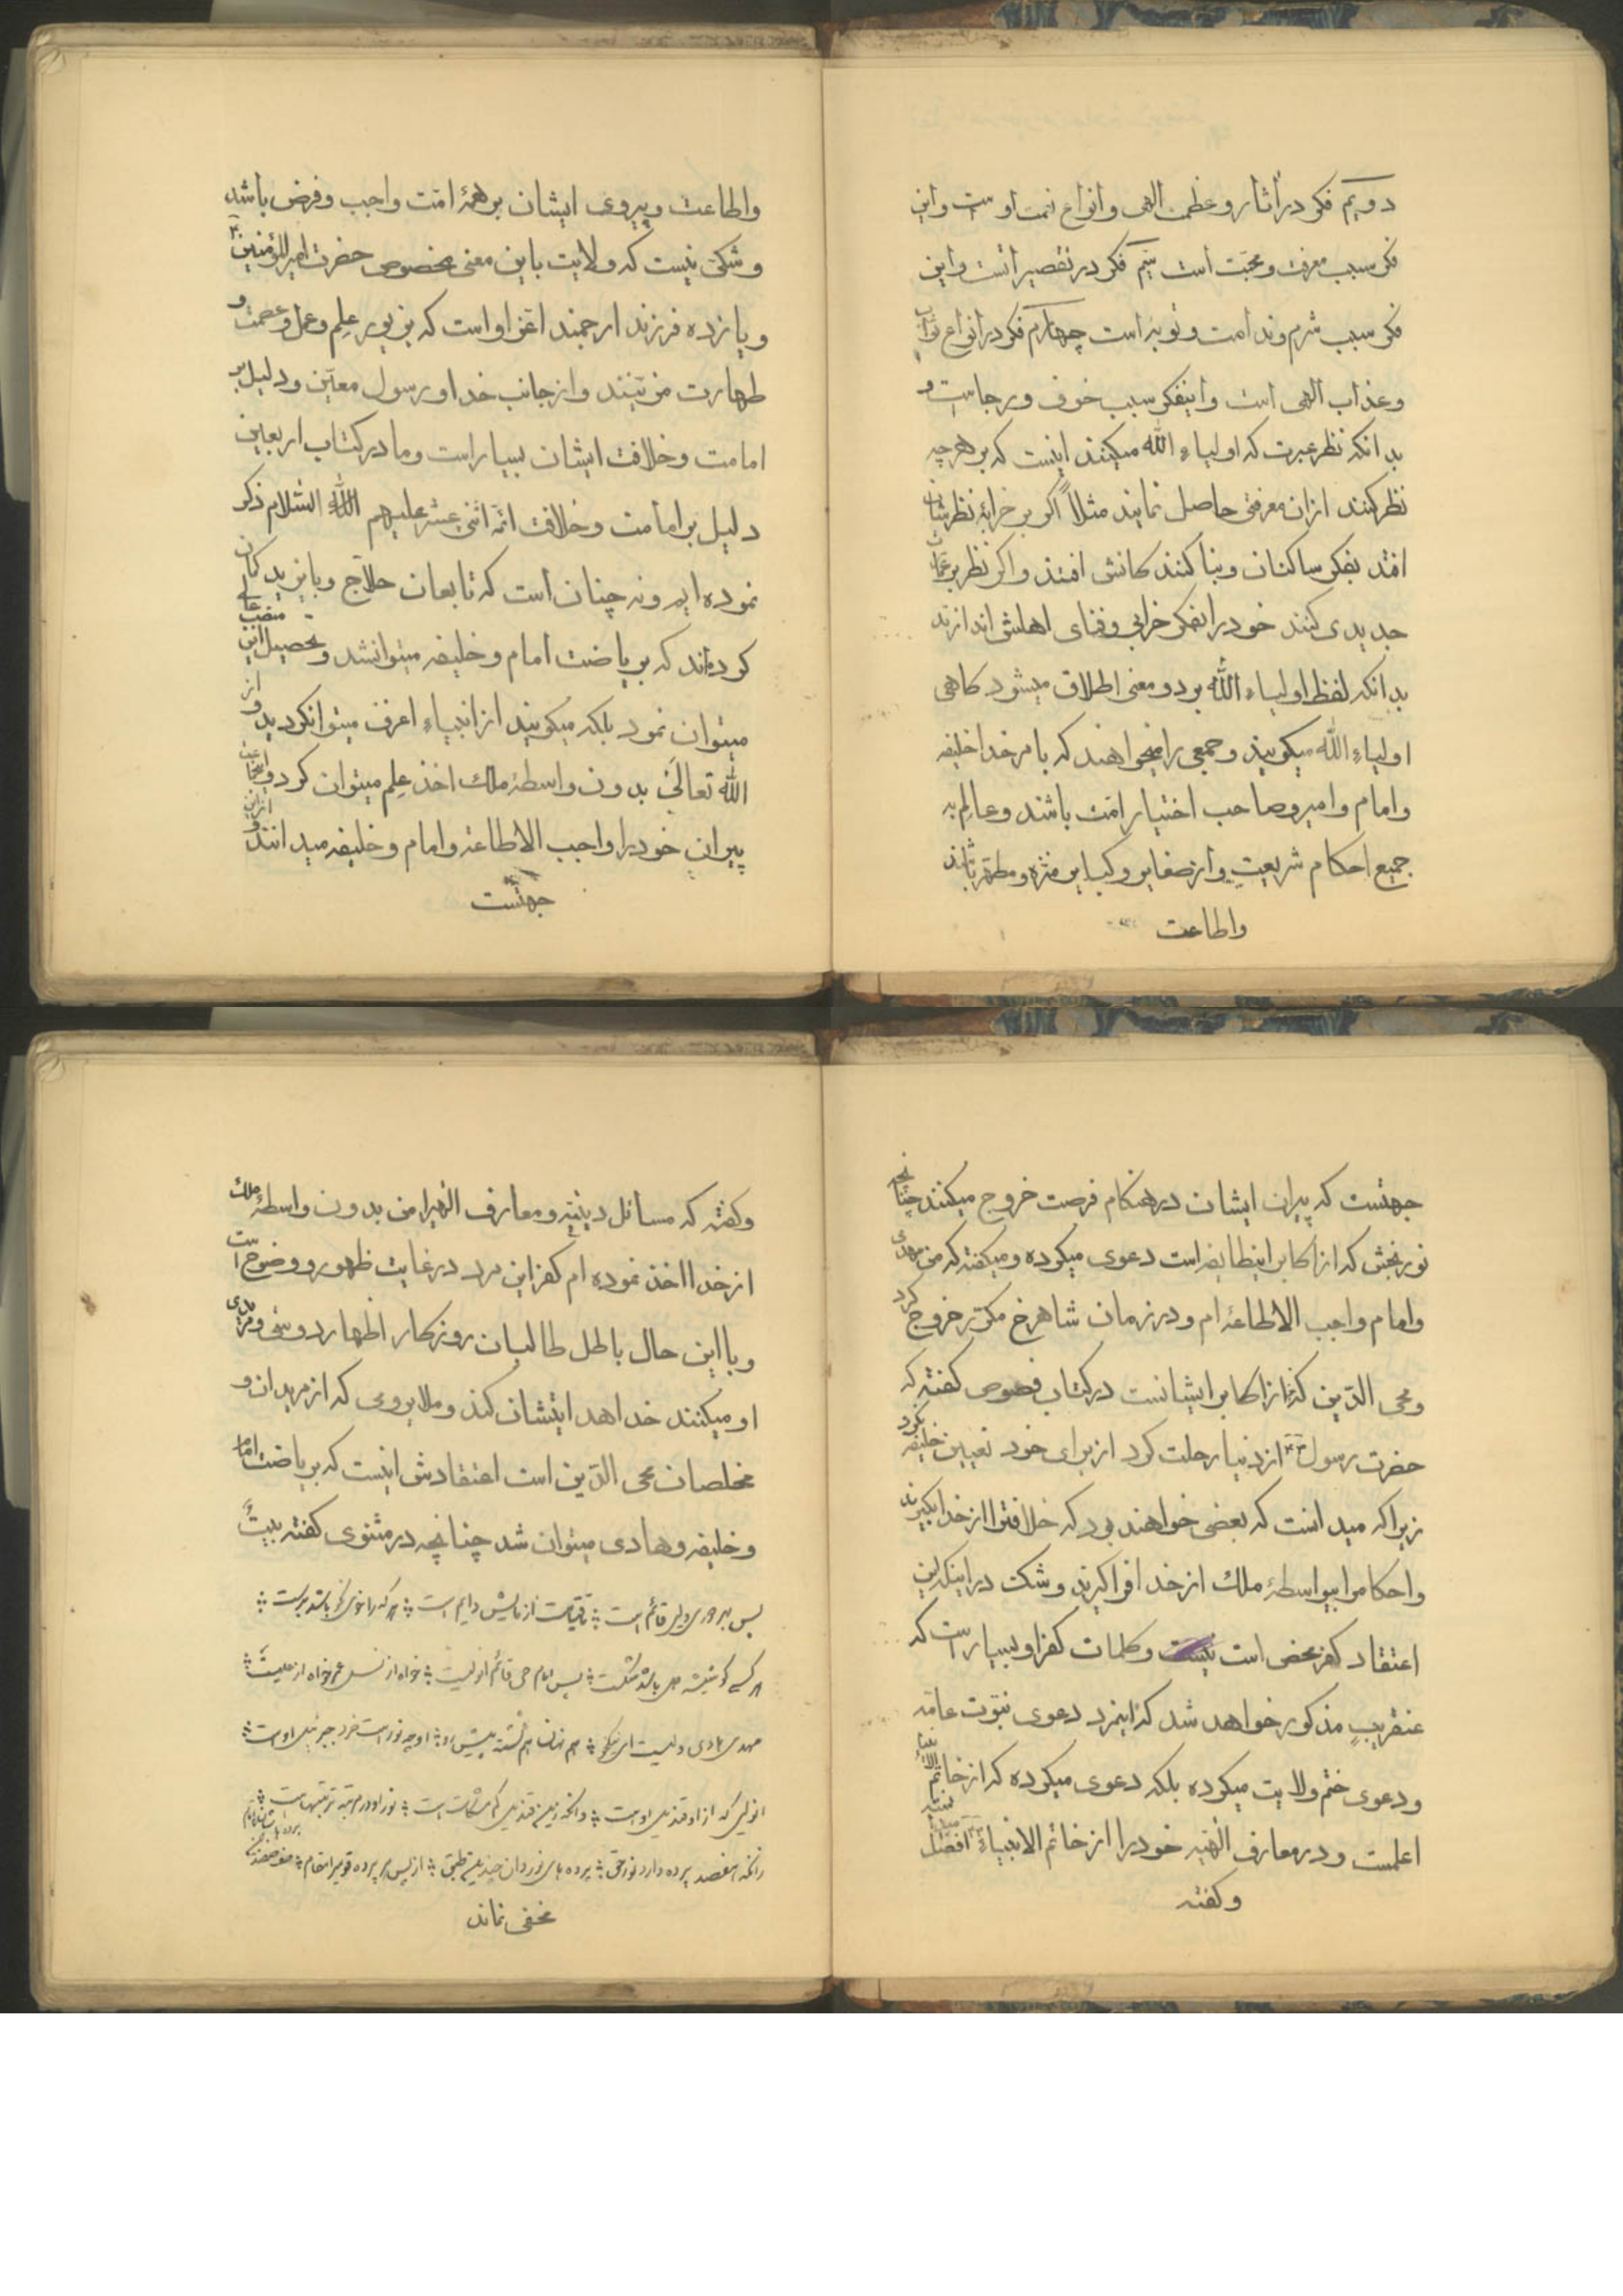 دویم فکر در آثار و عظمت الهی و انواع نعمت اوست و این
فکر سبب معرفت و محبّت است سیّم فکر در تقصیر است و این
فکر سبب شرم و ندامت و توبه است چهارم فکر در انواع ثواب
و عذاب الهی است و اینفکر سبب خوف و رجاست و
بدانکه نظر عبرت که اولیاء الله میکنند اینست که بر هر چه
نظر کنند از ان معرفتی حاصل نمایند مثلاً اگر بر خرابهٔ نظرشان
افتد بفکر ساکنان و بنا کنندکانش افتند و اکر نظر بر عمارت
جدیدی کنند خود را بفکر خرابی و فنای اهلش اندازند
بدانکه لفظ اولیاء الله بر دو معنی اطلاق میشود کاهی
اولیاء الله میکویند و جمعی را میخواهند که بامر خدا خلیفه
و امام و امیر و صاحب اختیار امّت باشند و عالم به
جمیع احکام شریعت و از صغایر و کبایر منزّه و مطهّر باشند
واطاعت
واطاعت و پیروی ایشان بر همهٔ امّت واجب و فرض باشد
و شکی نیست که ولایت باین معنی مخصوص حضرت امیرالمؤمنین
و یازده فرزند ارجمند اعزّ او است که بزیور علم و عمل و عصمت و
طهارت مزیّنند و از جانب خدا و رسول معیّن و دلیل بر
امامت و خلافت ایشان بسیار است و ما در کتاب اربعین
دلیل بر امامت و خلافت ائمّه اثنی عشر علیهم السّلام ذکر
نموده ایم و نه چنان است که تابعان حلاّج و بایزید کمان
کرده‌اند که بریاضت امام و خلیفه میتوانشد و تحصیل این منصب عالی
میتوان نمود بلکه میکویند از انبیاء اعرف میتوانکردید و از
الله تعالی بدون واسطهٔ ملک اخذ علم میتوان کرد و اینجماعت
پیران خود را واجب الاطاعه و امام و خلیفه میدانند و ازین
جهتست
جهتست که پیران ایشان در هنکام فرصت خروج میکنند چنانچه
نوربخش که از اکابر اینطایفه است دعوی میکرده و میکفته که من مهدی
و امام واجب الاطاعه ام و در زمان شاهرخ مکرّر خروج کرد
و محی الدّین که از اکابر ایشانست در کتاب فصوص کفته که
حضرت رسول از دنیا رحلت کرد از برای خود تعیین خلیفه نکرد
زیرا که میدانست که بعضی خواهند بود که خلافترا از خدا بکیرند
و احکامرا بیواسطهٔ ملک از خدا فراکیرند و شک در اینکه این
اعتقاد کفر محض است نیست و کلمات کفر او بسیار است که
عنقریب مذکور خواهد شد که اینمرد دعوی نبوّت عامّه
و دعوی ختم ولایت میکرده بلکه دعوی میکرده که از خاتم الانبیاء
اعلمست و در معارف الهیّه خود را از خاتم الانبیاء افضل
وکفته
وکفته که مسائل دینیّه و معارف الهیرا من بدون واسطهٔ ملک
از خدا اخذ نموده ام کفر این مرد در غایت ظهور و وضوح است
و با این حال باطل طالبان روزکار اظهار دوستی و مریدی
او میکنند خدا هدایتشان کند و ملاّی رومی که از مریدان و
مخلصان محی الدّین است اعتقادش اینست که بریاضت امام
و خلیفه و هادی میتوان شد چنانچه در مثنوی کفته بیت
پس بهر دوری ولی قائم است تا قیامت آزمایش دایم است هر که را خوی نکو باشد برست
هر کسی کو شیشه دل باشد شکست پس امام حی قائم آن ولیست خواه از نسل عمر خواه از علیست
مهدی و هادی ویست ای نیکخو هم نهان و هم نشسته پیش رو او چو نور است و خرد جبرئیل اوست
آن ولی کم از او قندیل اوست وآنکه زین قندیل کم مشکات ماست نور را در مرتبه ترتیبهاست
زانکه هفصد پرده دارد نور حق پرده های نور دان چندین طبق از پس هر پرده قومیرا مقام صف صفند این پرده هاشان تا امام
مخفی نماند